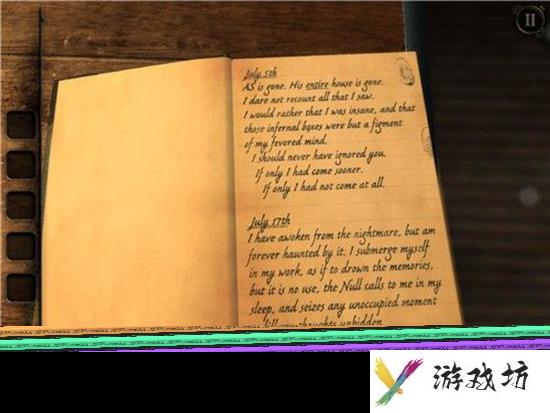 July 5th
AS is gone. His entire house is gone.
I dare not recount all that I saw.
I would rather that I was insane, and that
those infernal boxes were but a figment
of my fevered mind.
I should never have ignored you.
If only I had come sooner.
If only I had not come at all.
July 17th
I have awoken from the nightmare, but am
forever haunted by it. I submerge myself
in my work, as if to drown the memories,
but it is no use, the Null calls to me in my
sleep, and seizes any unoccupied moment
my thoughts unbidden
游戏坊